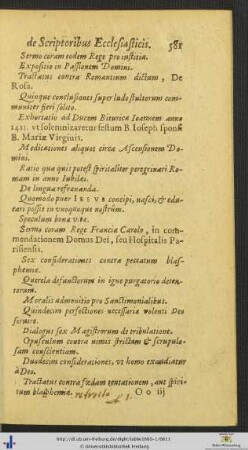 de Scriptoribus Ecclesiasticis. 581
Sermo coram eodem Rege pro iustitia.
Expositio in Passionem Domini.
Tractatus contra Romantium dictum, De
Rosa.
Quinque conclusiones super ludo stultorum com-
muniter fieri solito.
Exhortatio ad Ducem Bituricæ Ioannem anno
1413. vt solemnizaretur festum B. Ioseph sponsi
B. Mariæ Virginis.
Meditationes aliquot circa Ascensionem Do-
mini.
Ratio qua quit potest spiritaliter peregrinari Ro-
mam in anno Iubilei.
De lingua refrænanda.
Quomodo puer IESVS concipi, nasci, & edu-
cari possit in vnoquoque nostrum.
Speculum bonæ vitæ.
Sermo coram Rege Franciæ Carolo, in com-
mendationem Domus Dei, seu Hospitalis Pa-
risiensis.
Sex considerationes contra peccatum blas-
phemiæ.
Querela defunctorum in igne purgatorio deten-
torum.
Moralis admonitio pro Sanctimonialibus.
Quindecim perfectiones necessariæ volenti Deo
seruire.
Dialogus sex Magistrorum de tribulatione.
Opusculum contra nimis strictam & scrupulo-
sam conscientiam.
Duodecim considerationes, vt homo exaudiatur
à Deo.
Tractatus contra fœdam tentationem, aut spiri-
tum blasphemiæ.
O o iij
© Universitätsbibliothek Freiburg